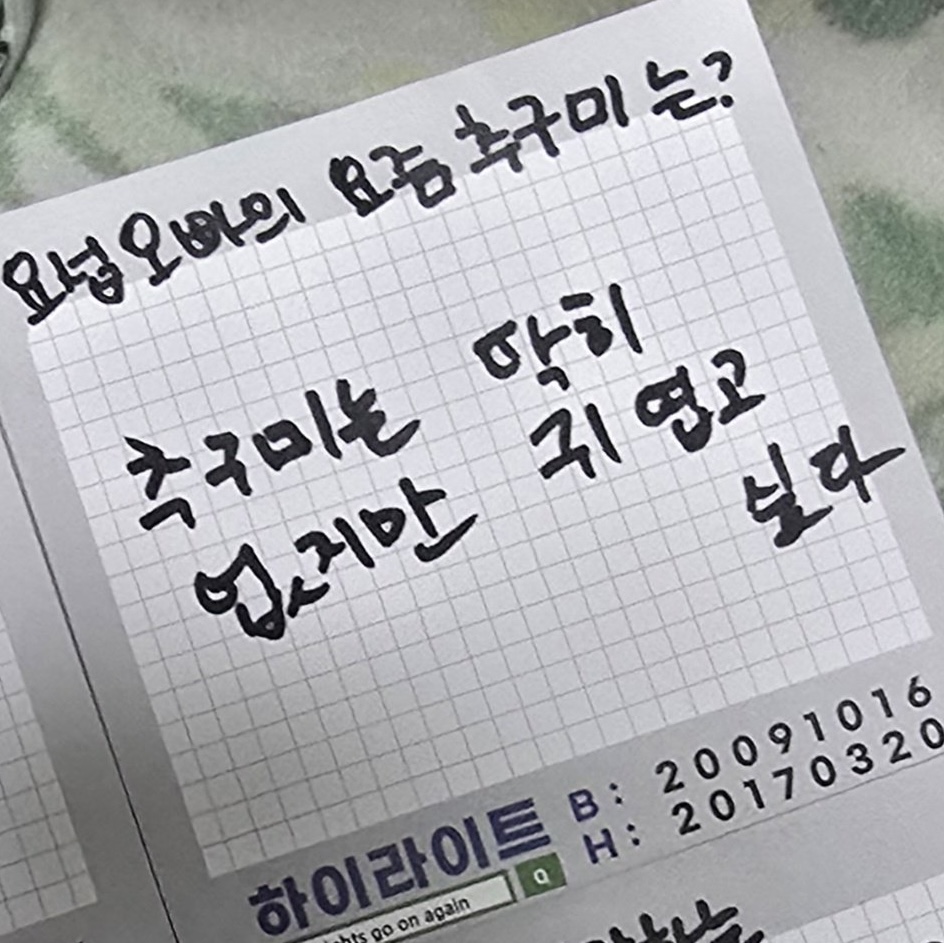 요넙오빠의 요즘 추구미는?
추구미는 딱히
없지만 귀엽고
싶다
하이라이트 B: 20091016
H: 20170320
ghts go on again